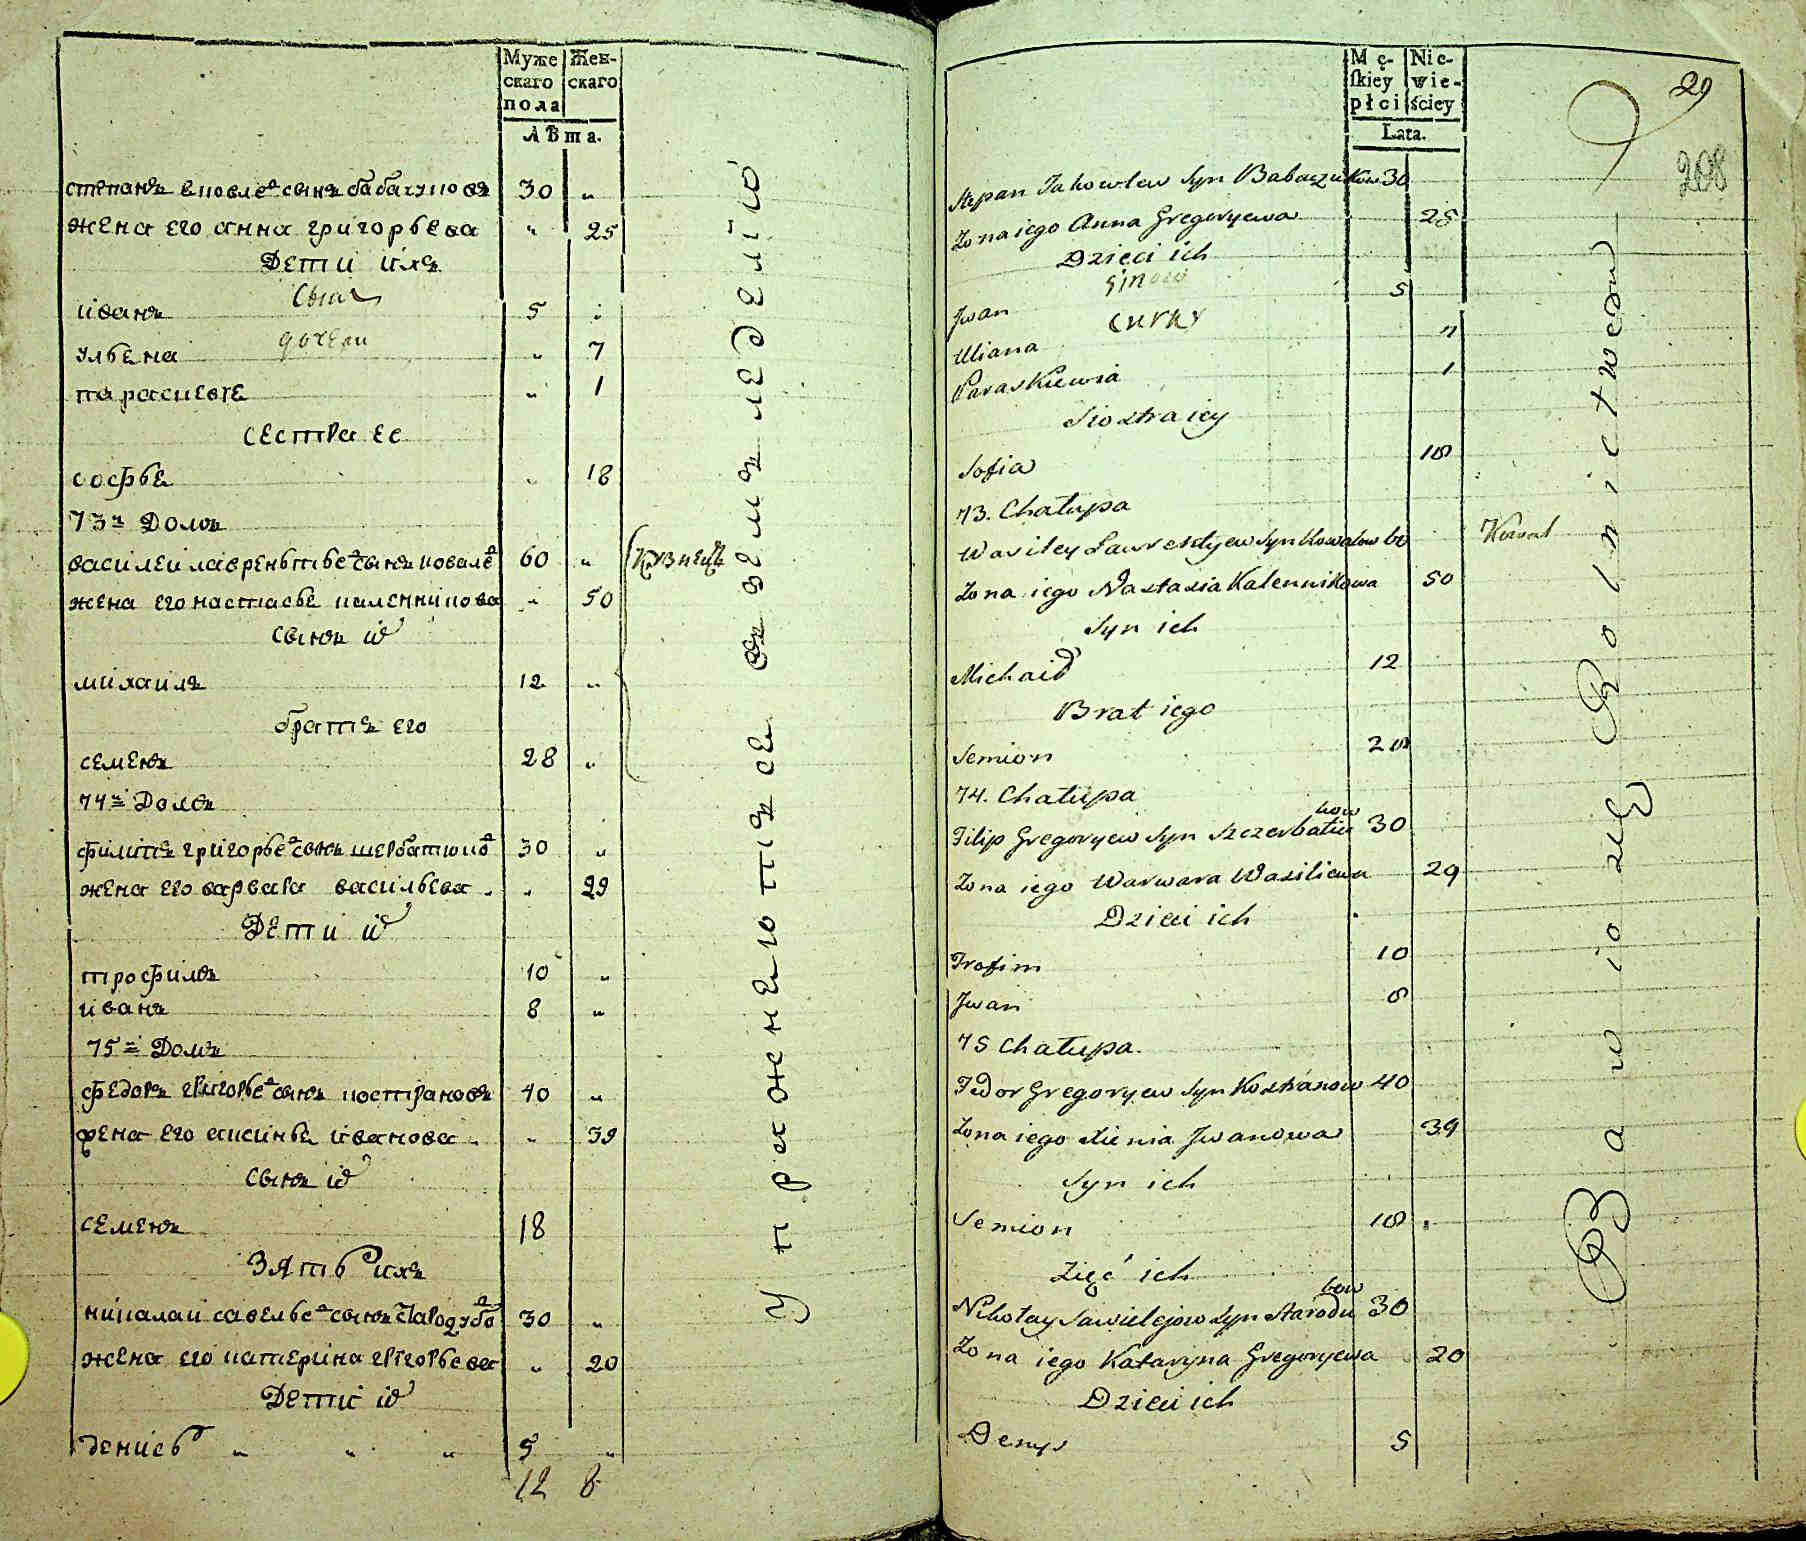 Муже Жен-
скаго скаго
пола
Лѣта.
степанъ еповлеⷡ сынъ бабачуповъ 30 „
жена его анна григорьева „ 25
Дети ихъ
Сынъ
иванъ 5 „
дочери
ульена „ 7
парасцевъе „ 1
сестра ее
софье „ 18
73й Домъ
василеи лавреньтьеⷡ сынъ ковалеⷡ 60 „
Кузнецъ
жена его настасье каленникова „ 50
сынъ их
михаилъ 12 „
братъ его
семенъ 28 „
74й Домъ
филипъ григорьеⷡ сынъ щербатюкоⷡ 30 „
жена его варвара васильева „ 29
Дети их
трофимъ 10 „
иванъ 8 „
75й Домъ
федоръ григорьеⷡ сынъ кострановъ 40 „
жена его аксинье иванова „ 39
сынъ их
семенъ 18
Зять ихъ
николаи савельеⷡ сынъ стародубоⷡ 30 „
жена его катерина григорьева „ 20
Дети их
денисъ „ „ „ 5 „
12 8
Упражнеютца въ земледелїю
Mę- Nie-
skiey wie-
płci ściey
Lata.
29
208
Stepan Jakowlew Syn Babaczukow 30
Zona iego Anna Gregoryewa 25
Dzieci ich
Sinow
Jwan 5
Curky
Uliana 7
Paraskiewia 1
Siostra iey
Sofia 18
73. Chałupa
Wasiley Lawrentyew Syn Kowalow 60
Kowal
Zona iego Nastasia Kalennikowa 50
Syn ich
Michaił 12
Brat iego
Semion 28
74. Chałupa
Filip Gregoryew Syn Szczerbatiukow 30
Zona iego Warwara Wasiliewa 29
Dzieci ich
Trofim 10
Jwan 8
75 Chałupa.
Fedor Gregoryew Syn Kostranow 40
Zona iego Xienia Jwanowa 39
Syn ich
Semion 18
Zięć ich
Nikołay Sawielejow Syn Starodubow 30
Zona iego Kataryna Gregoryewa 20
Dzieci ich
Denys 5
Bawio się Rolnictwem